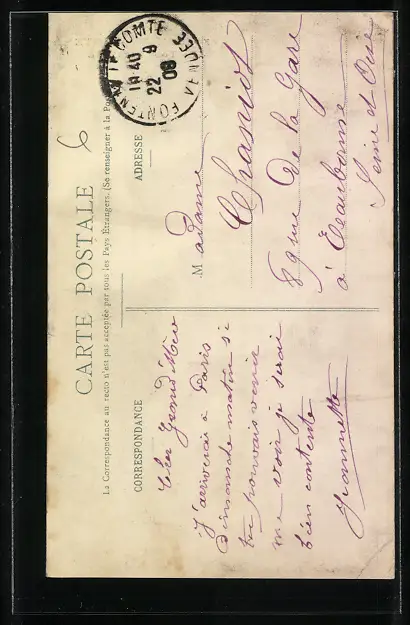 CARTE POSTALE
La Correspondance au recto n'est pas acceptée par tous les Pays Étrangers. (Se renseigner à la Poste
CORRESPONDANCE
Chère Grand Mère
J'arriverai à Paris
Dimanche matin si
tu pouvais venir
me voir je serai
bien contente
Jeannette
6
FONTENAY LE COMTE
VENDEE
9
22
08
ADRESSE
Madame
Chaniot
Rue De la Gare
à Eaubonne
Seine et Oise